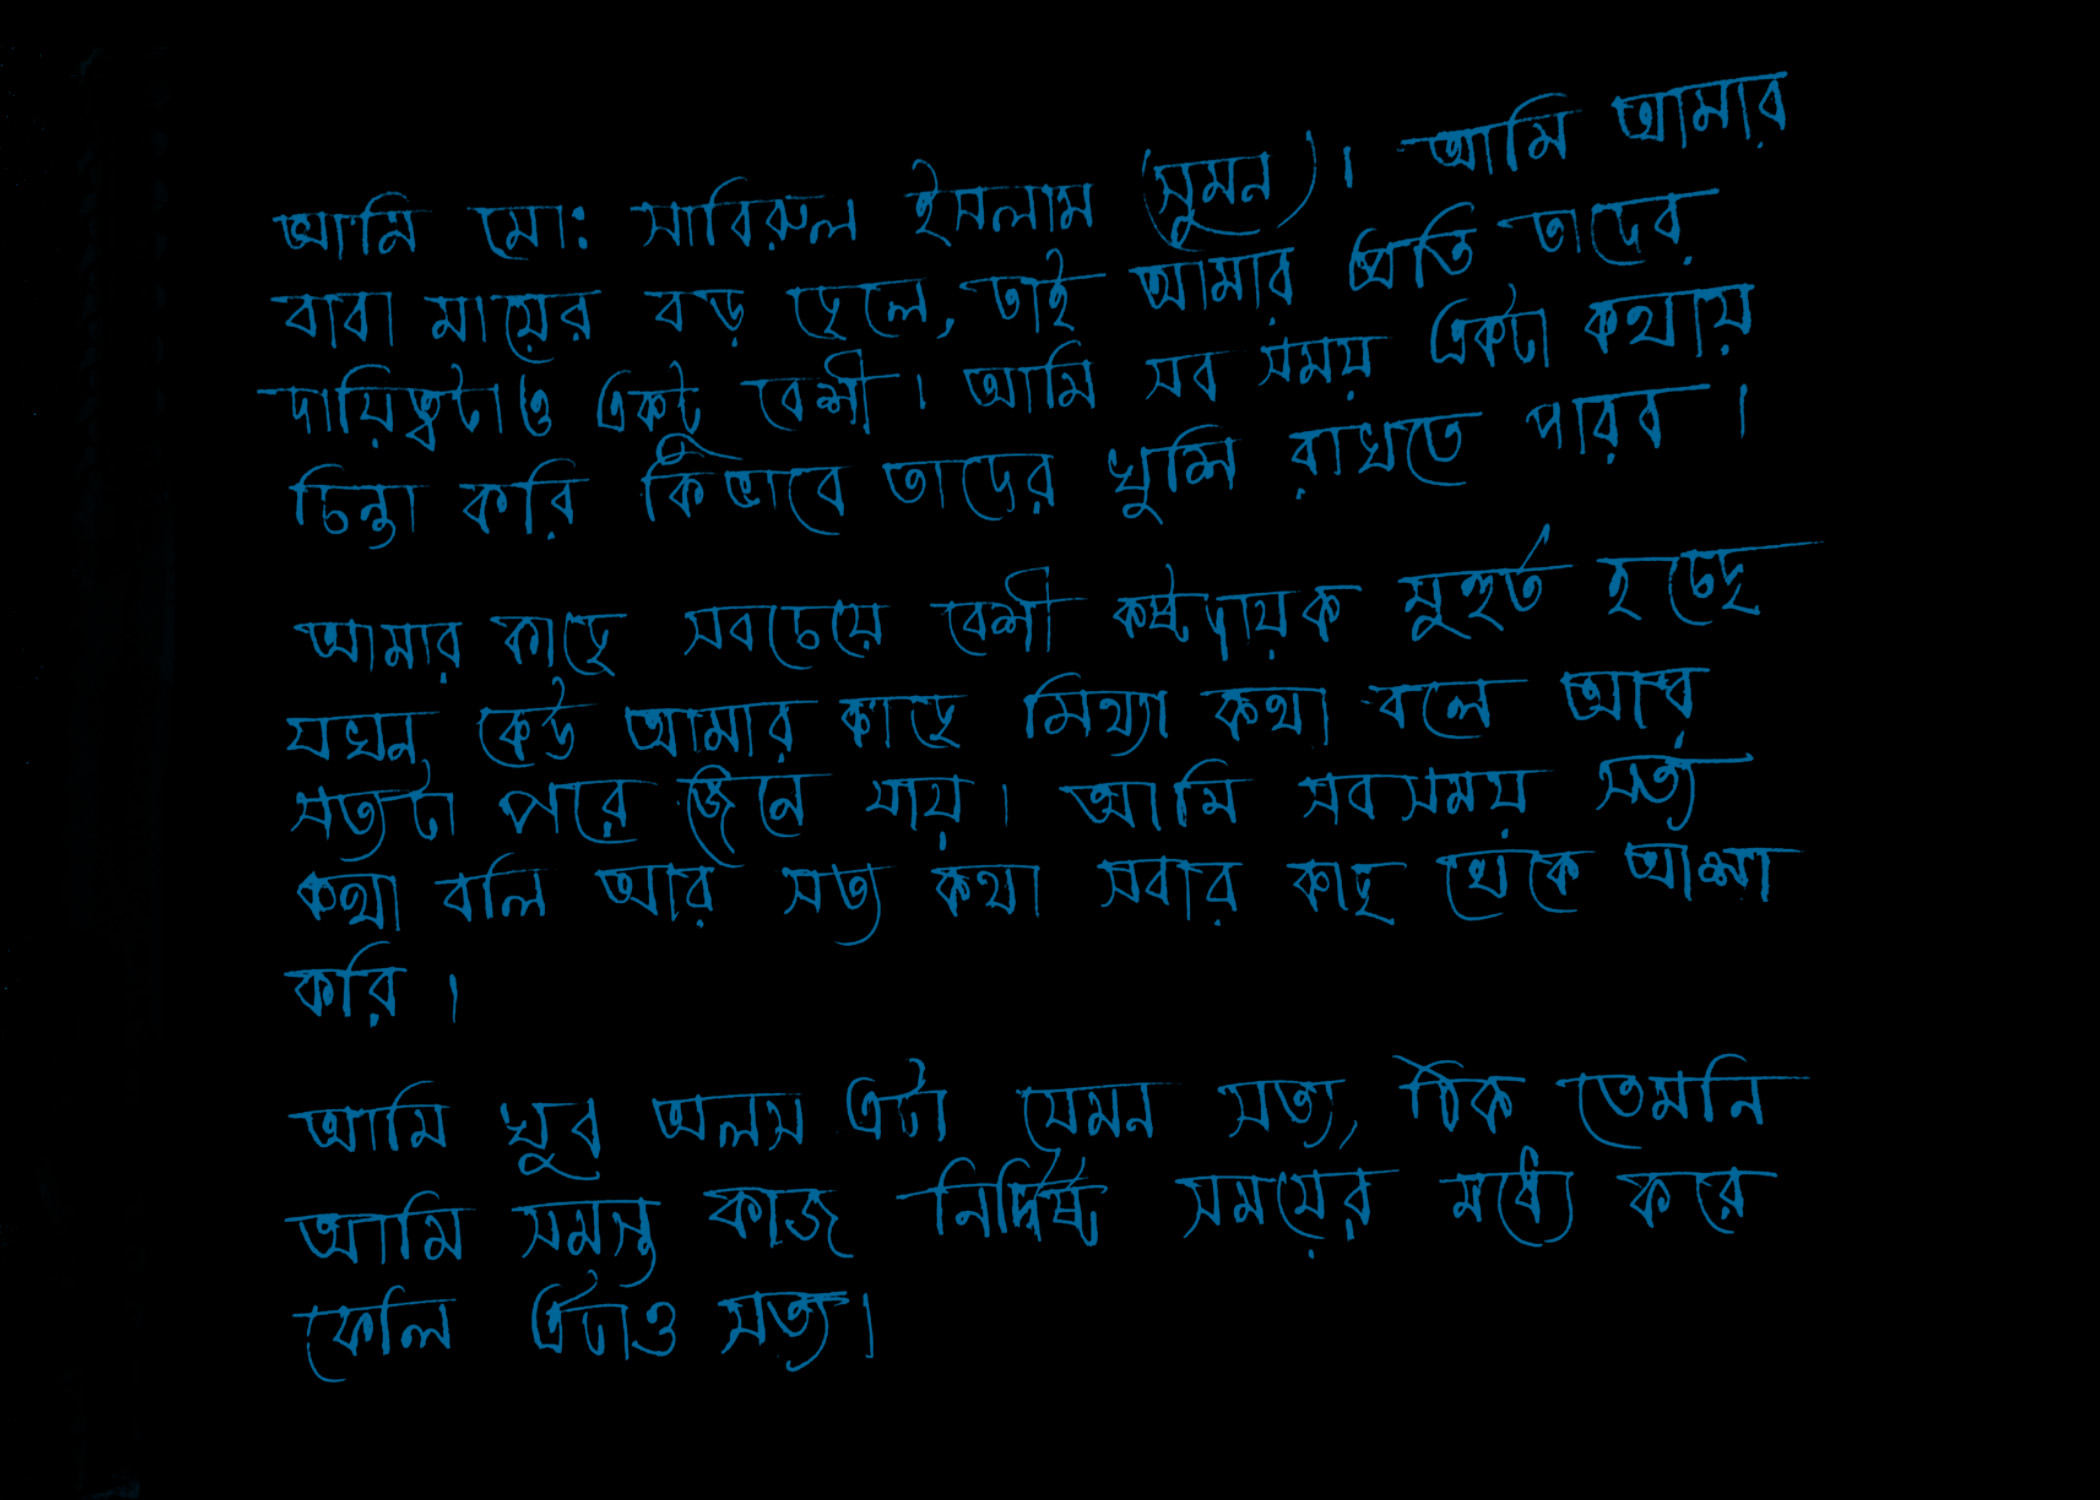 আমি মো: সাবিরুল ইসলাম (সুমন)। আমি আমার
বাবা মায়ের বড় ছেলে, তাই আমার প্রতি তাদের
দায়িত্বটাও একটু বেশী। আমি সব সময় একটা কথায়
চিন্তা করি কিভাবে তাদের খুশি রাখতে পারব।
আমার কাছে সবচেয়ে বেশী কষ্টদায়ক মুহুর্ত হচেছ
যখন কেউ আমার কাছে মিথ্যা কথা বলে আর
সত্যটা পরে জেনে যায়। আমি সবসময় সত্য
কথা বলি আর সত্য কথা সবার কাছ থেকে আশা
করি।
আমি খুব অলস এটা যেমন সত্য, ঠিক তেমনি
আমি সমস্ত কাজ নির্দিষ্ট সময়ের মধ্যে করে
ফেলি এটাও সত্য।